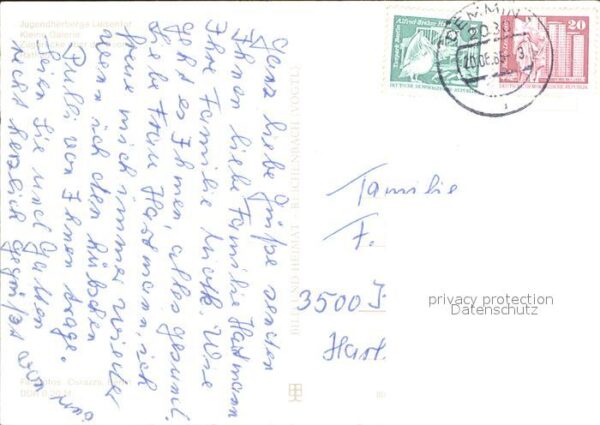 Jugendherberge
Kleine Galerie
Ganz liebe Grüße senden
Ihnen liebe Familie Hartmann
Ihre Familie Wie
geht es Ihnen, alles gesund.
Liebe Frau Hartmann, ich
freue mich immer wieder
wenn ich den hübschen
Pulli von Ihnen trage.
Seien Sie und Gatten
recht herzlich gegrüßt von
BILD UND HEIMAT REICHENBACH (VOGTL)
DEMMIN
2030
20
DEUTSCHE DEMOKRATISCHE REPUBLIK
DEUTSCHE DEMOKRATISCHE REPUBLIK
Familie
F.
3500
Hart
privacy protection
Datenschutz